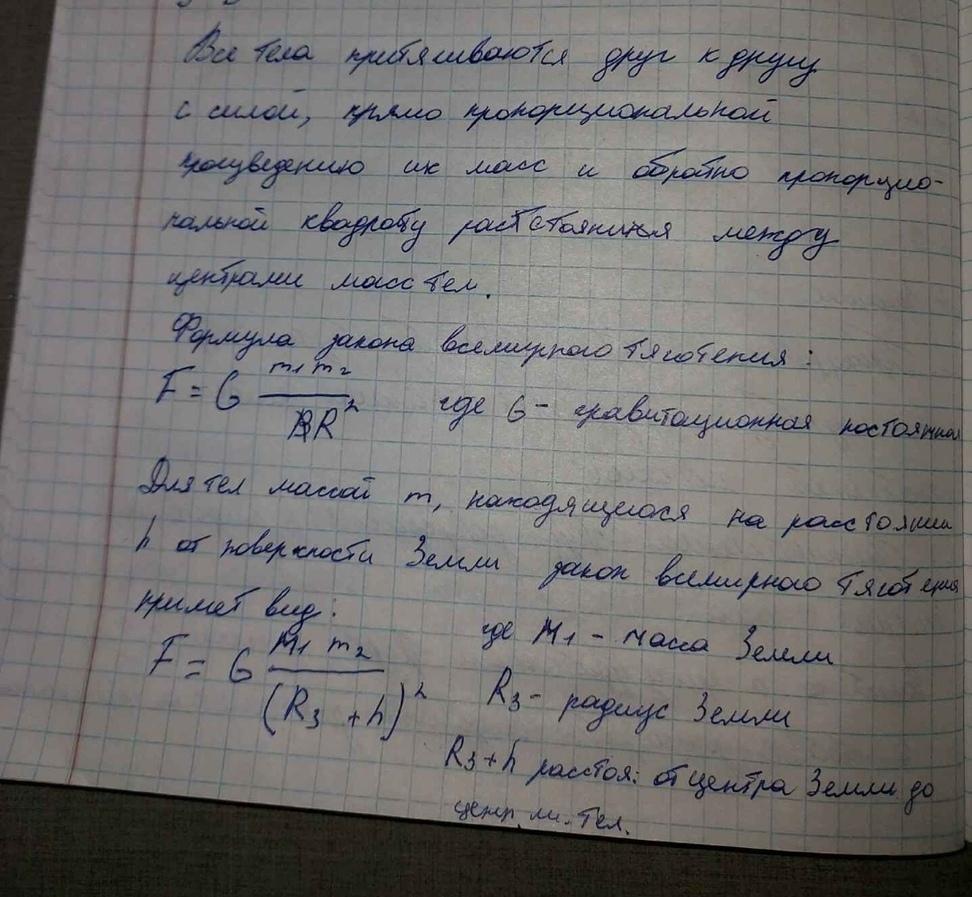 Все тела притягиваются друг к другу
с силой, прямо пропорциональной
произведению их масс и обратно пропорцио-
нальной квадрату расстояния между
центрами масс тел.
Формула закона всемирного тяготения:
F = G m₁ m₂ / R² где G - гравитационная постоянная
Для тел массой m, находящегося на расстоянии
h от поверхности Земли закон всемирного тяготения
примет вид:
F = G M₁ m₂ / (R₃ + h)² где M₁ - масса Земли
R₃ - радиус Земли
R₃+h расстоя: от центра Земли до
центр. м. тел.